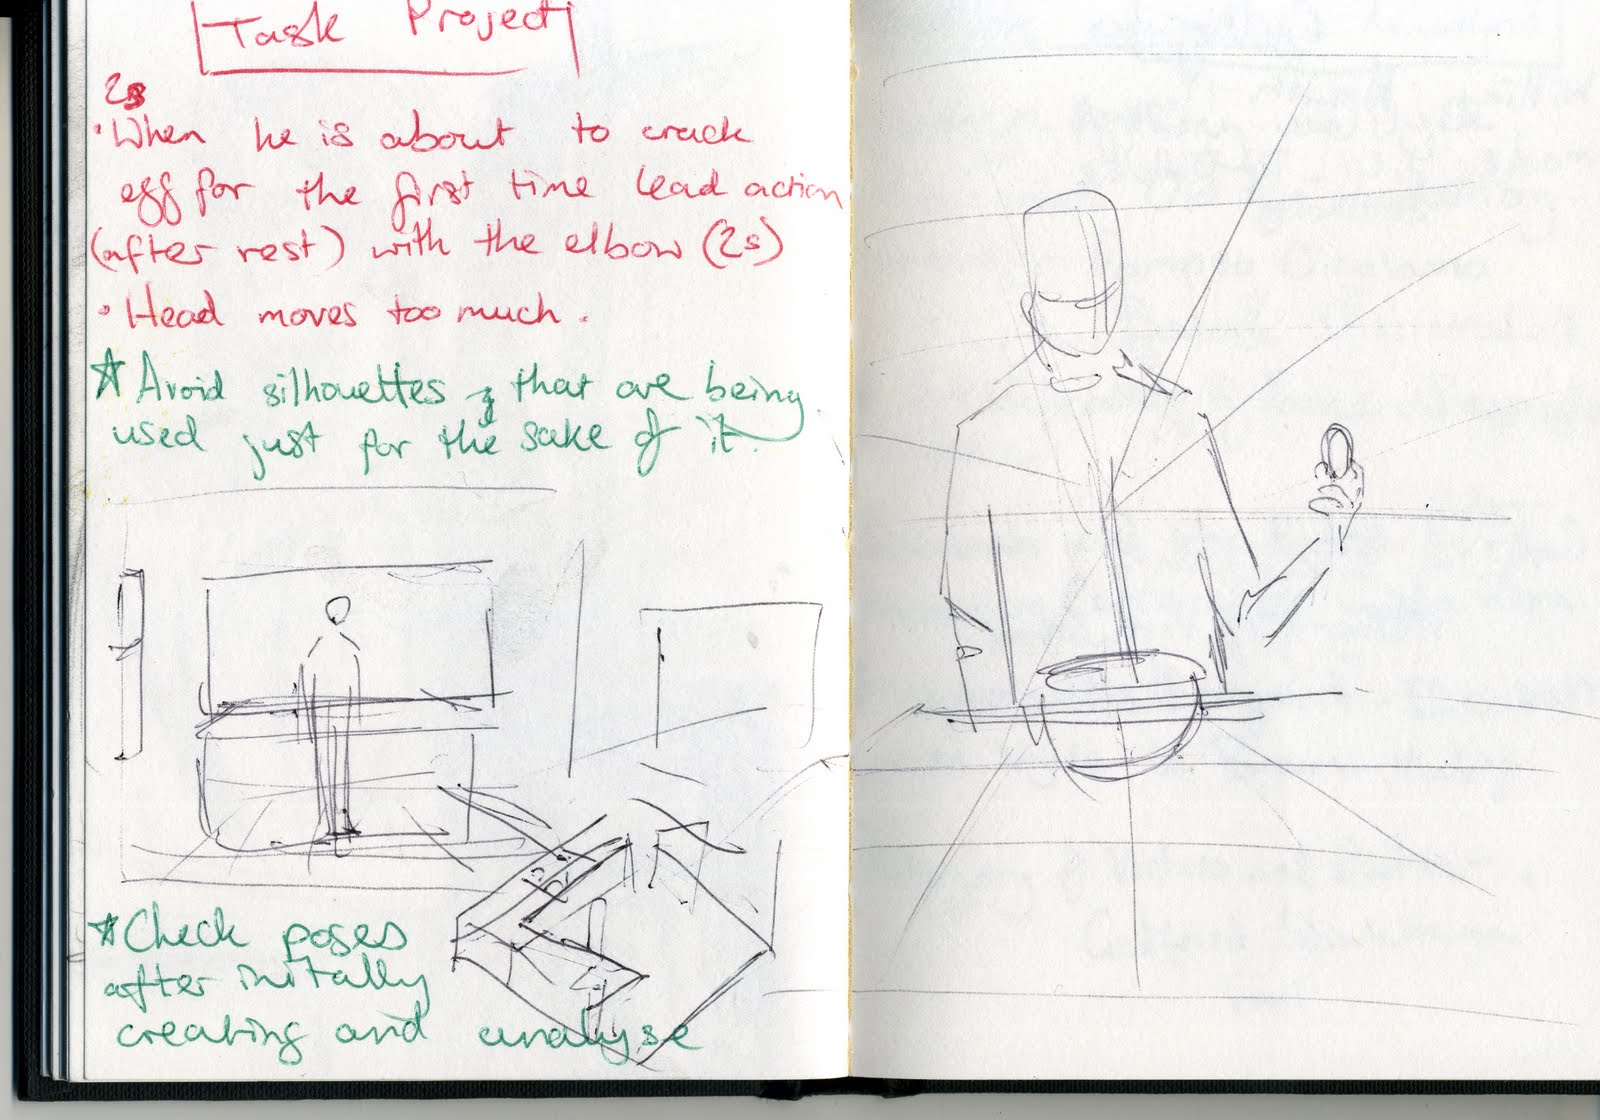 Task Project
2s
• When he is about to crack
egg for the first time lead action
(after rest) with the elbow (2s)
• Head moves too much.
☆ Avoid silhouettes that are being
used just for the sake of it.
☆ Check poses
after initally
creating and analyse